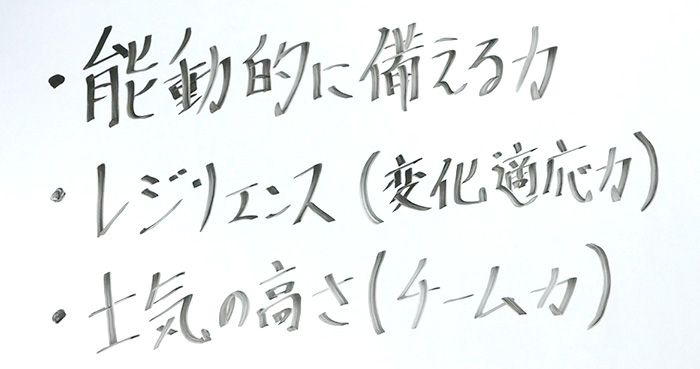 ・能動的に備える力
・レジリエンス(変化適応力)
・士気の高さ(チーム力)